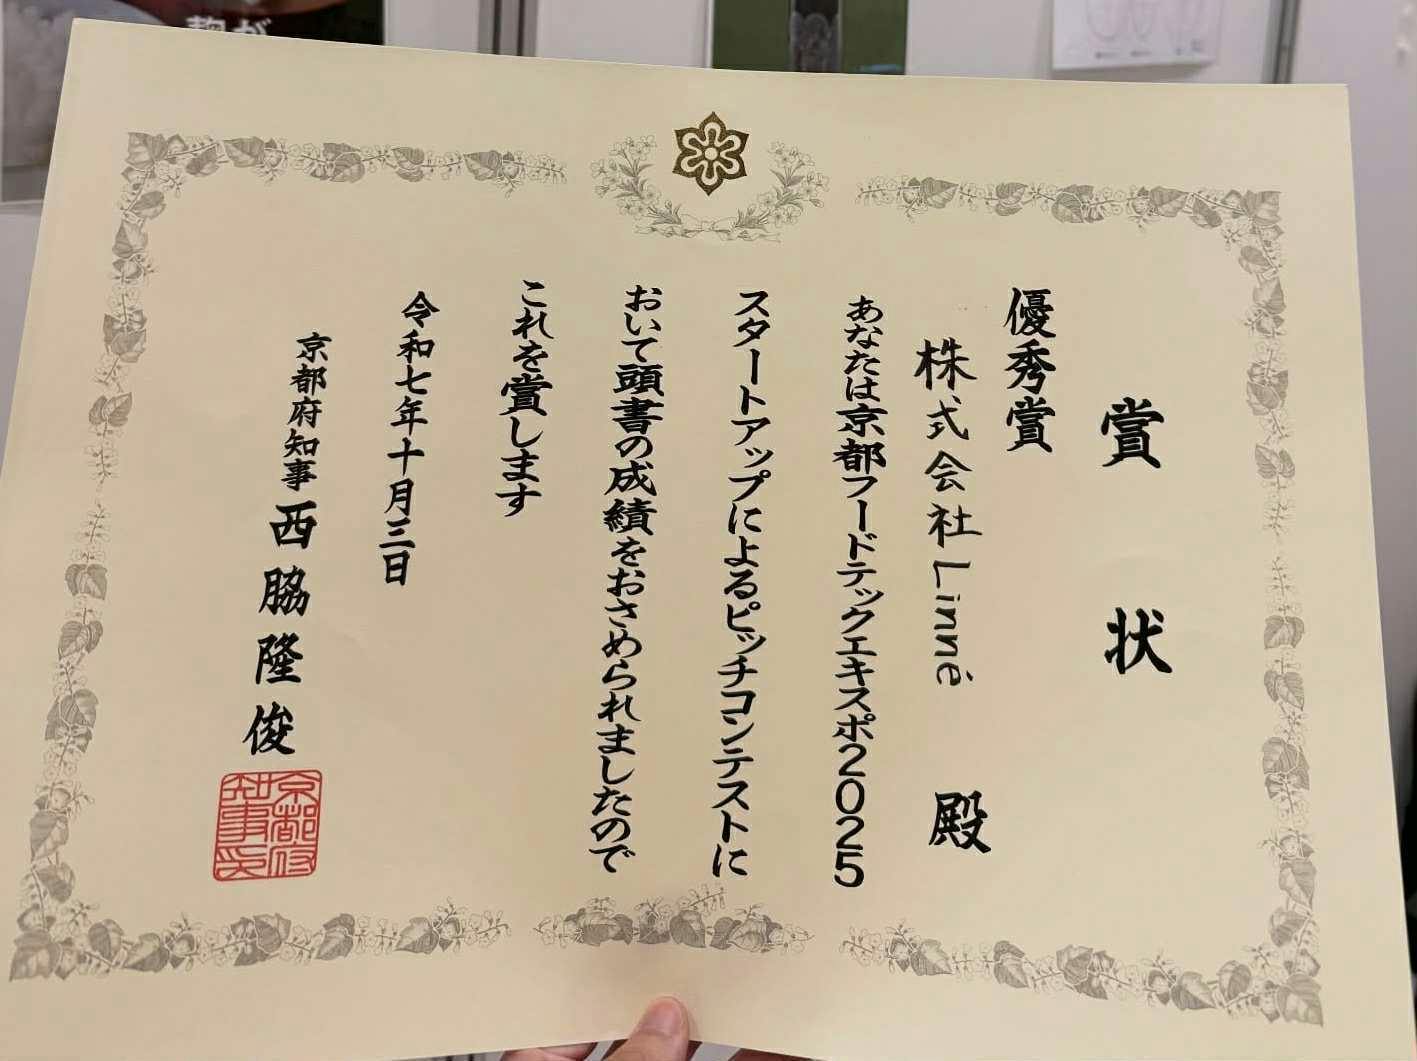 賞状
優秀賞
株式会社Linné 殿
あなたは京都フードテックエキスポ2025
スタートアップによるピッチコンテストに
おいて頭書の成績をおさめられましたので
これを賞します
令和七年十月三日
京都府知事 西脇隆俊
京都府
知事印
麹が